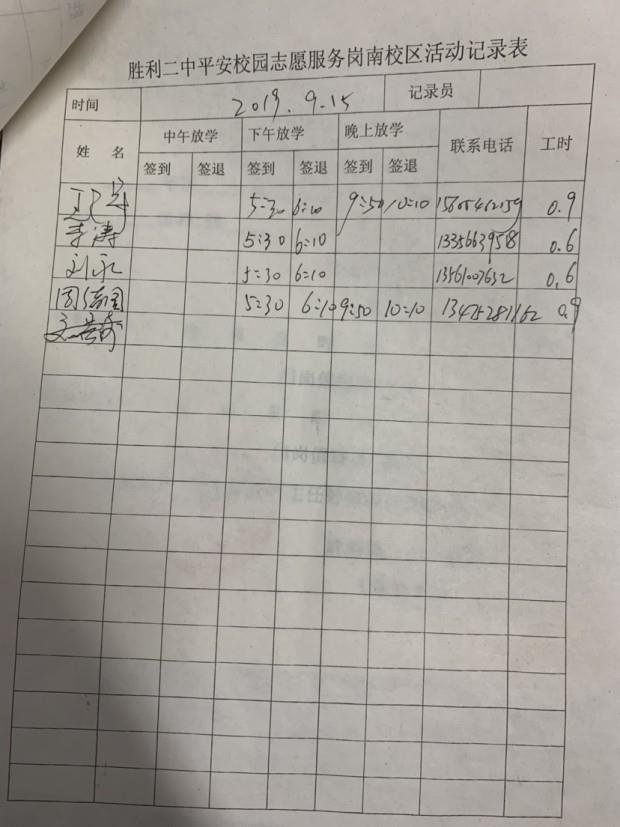 胜利二中平安校园志愿服务岗南校区活动记录表
时间 2019.9.15 记录员
姓 名 中午放学 下午放学 晚上放学 联系电话 工时
签到 签退 签到 签退 签到 签退
5:30 6:10 9:50 10:10 0.9
李涛 5:30 6:10 0.6
刘永 5:30 6:10 13561007632 0.6
5:30 6:10 9:50 10:10 13475281162 0.9